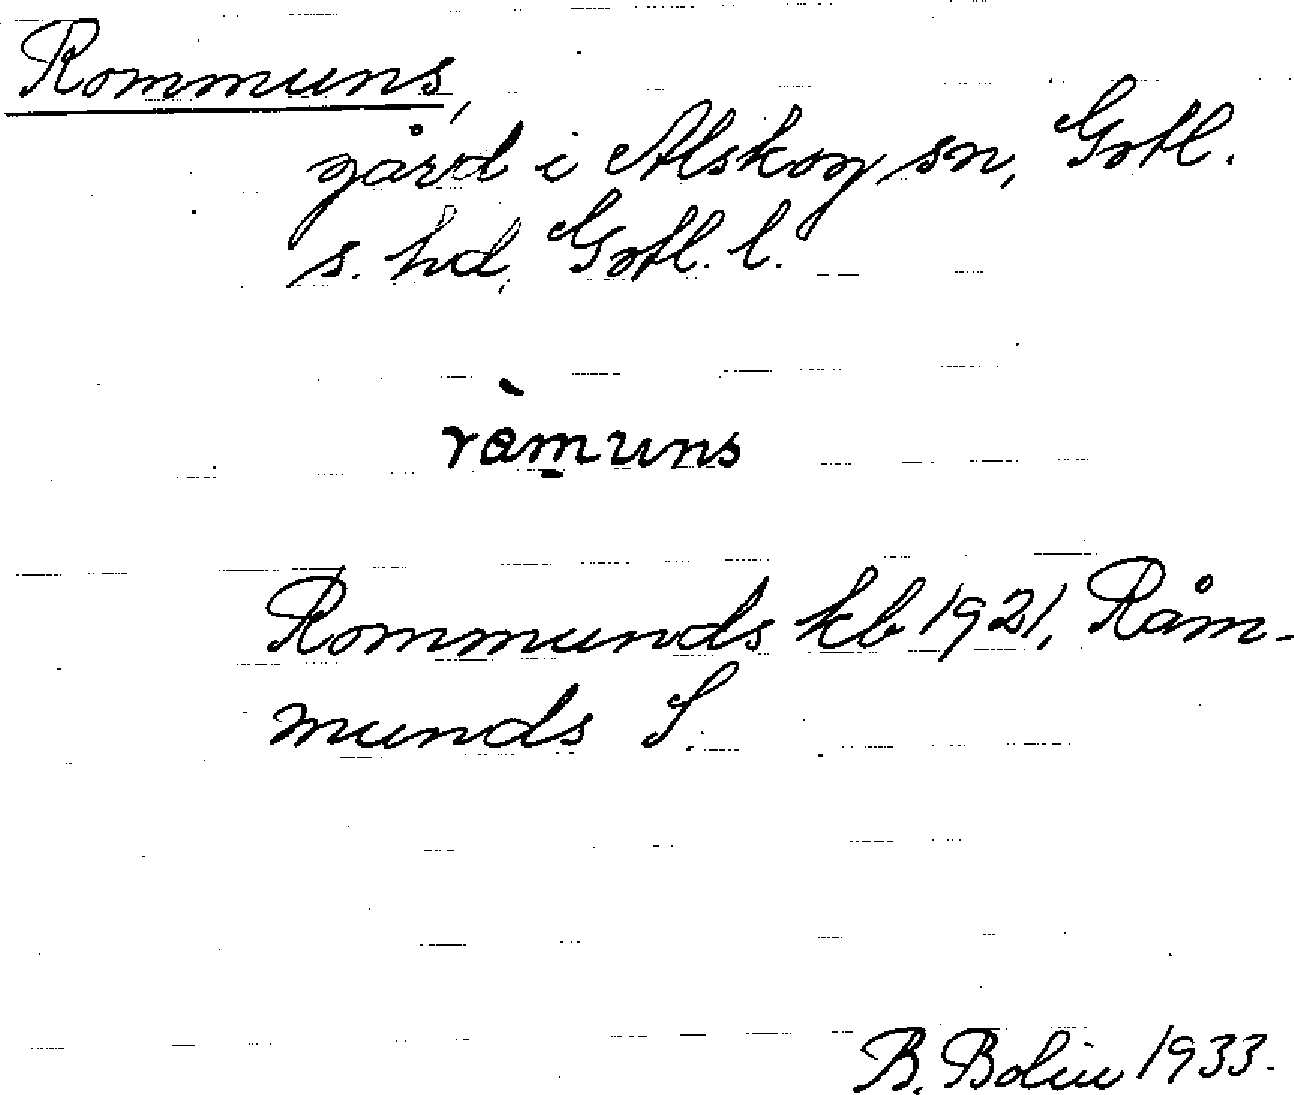 Rommuns,
gård i Alskog sn, Gotl.
s. hd, Gotl. l.
ràm̱uns
Rommunds kb 1921, Råm-
munds S.
B. Bolin 1933.